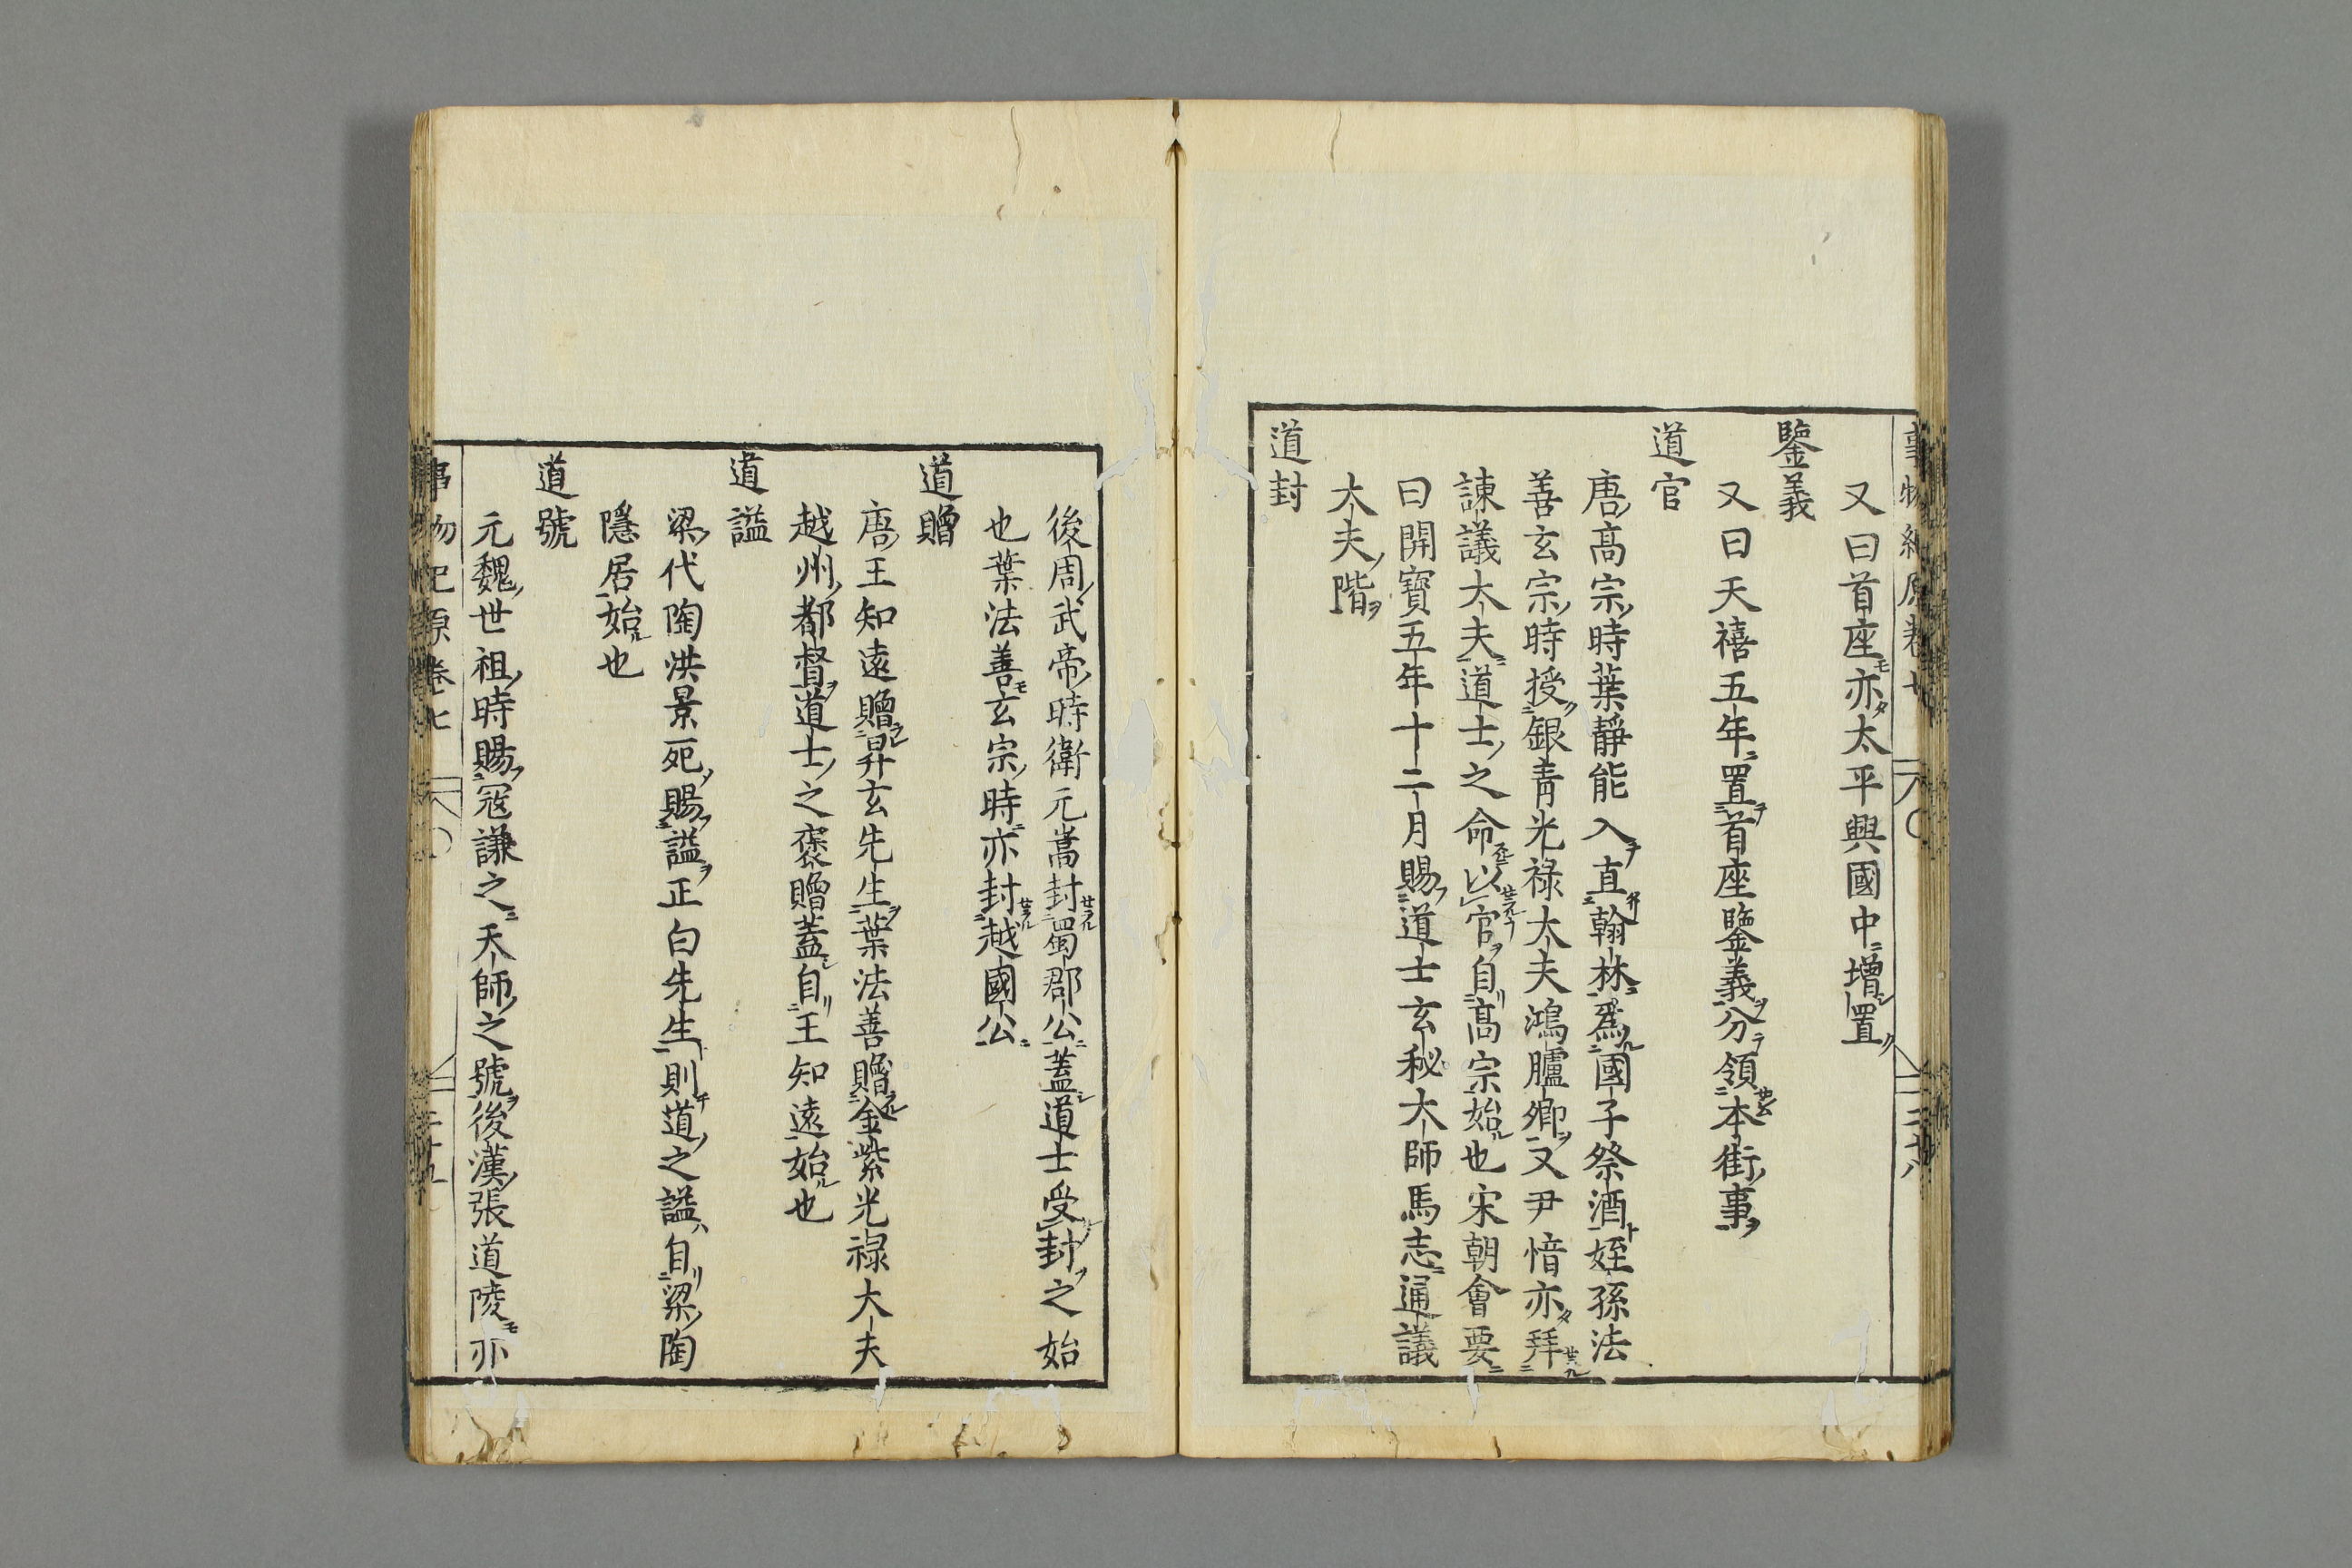 又曰首座亦太平興國中增置
鑒義
又曰天禧五年置首座鑒義分領本街事
道官
唐高宗時葉靜能入直翰林爲國子祭酒姪孫法
善玄宗時授銀青光祿大夫鴻臚卿又尹愔亦拜
諫議大夫道士之命以官自高宗始也宋朝會要
曰開寶五年十二月賜道士玄秘大師馬志通議
大夫階
道封
後周武帝時衛元嵩封蜀郡公蓋道士受封之始
也葉法善玄宗時亦封越國公
道贈
唐王知遠贈昇玄先生葉法善贈金紫光祿大夫
越州都督道士之褒贈蓋自王知遠始也
道謚
梁代陶洪景死賜謚正白先生則道之謚自梁陶
隱居始也
道號
元魏世祖時賜寇謙之天師之號後漢張道陵亦